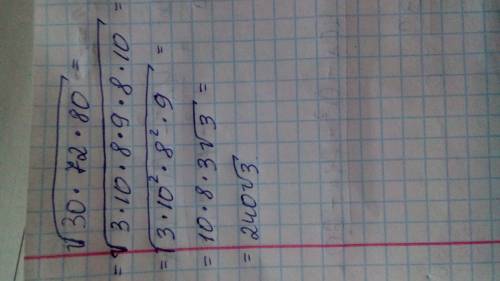 √30·72·80 =
= √3·10·8·9·8·10 =
= √3·10²·8²·9 =
= 10·8·3√3 =
= 240√3